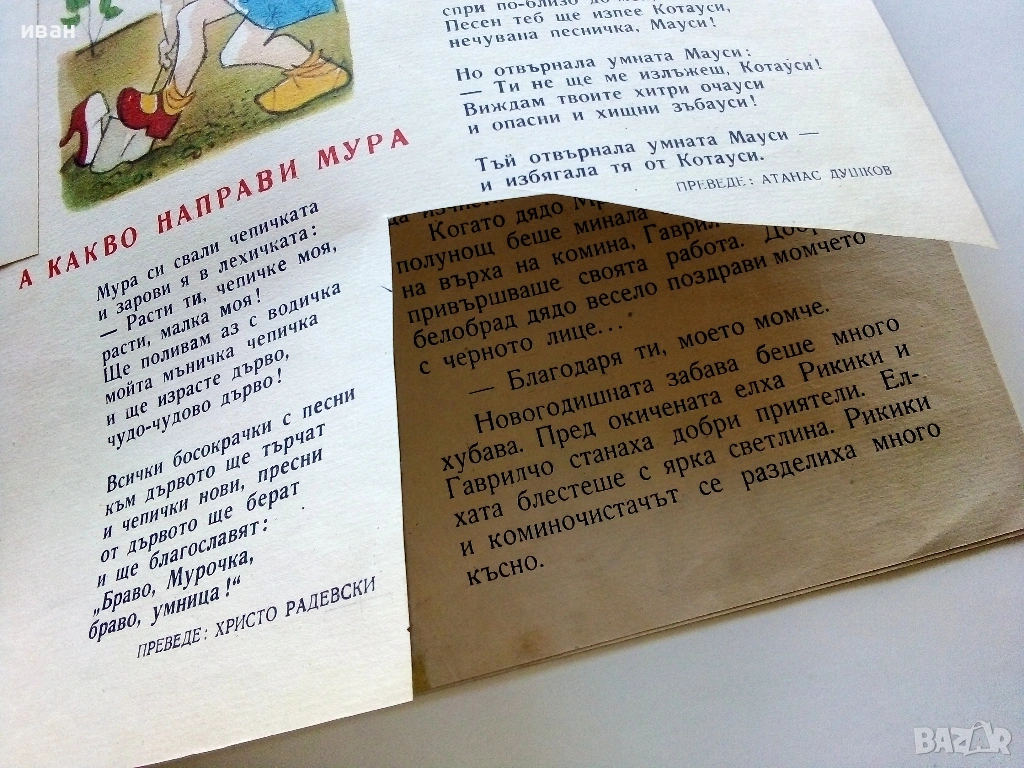 иван
А КАКВО НАПРАВИ МУРА
Мура си свали чепичката
и зарови я в лехичката:
— Расти ти, чепичке моя,
расти, малка моя!
Ще поливам аз с водичка
мойта мъничка чепичка
и ще израсте дърво,
чудо-чудово дърво!
Всички босокрачки с песни
към дървото ще търчат
и чепички нови, пресни
от дървото ще берат
и ще благославят:
„Браво, Мурочка,
браво, умница!“
ПРЕВЕДЕ: ХРИСТО РАДЕВСКИ
спри по-близо до
Песен теб ще изпее Котауси,
нечувана песничка, Мауси!
Но отвърнала умната Мауси:
— Ти не ще ме излъжеш, Котауси!
Виждам твоите хитри очауси
и опасни и хищни зъбауси!
Тъй отвърнала умната Мауси —
и избягала тя от Котауси.
ПРЕВЕДЕ: АТАНАС ДУШКОВ
Когато дядо
полунощ беше минала
на върха на комина,
привършваше своята работа.
белобрад дядо весело поздрави момчето
с черното лице...
— Благодаря ти, моето момче.
Новогодишната забава беше много
хубава. Пред окичената елха Рикики и
Гаврилчо станаха добри приятели. Ел-
хата блестеше с ярка светлина. Рикики
и коминочистачът се разделиха много
късно.
BAZAR